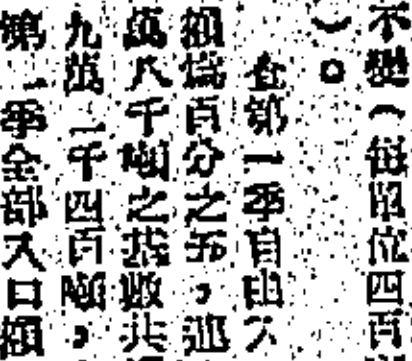 不變（每單位四百
）。
在第一季自由入
額爲百分之五，連
萬八千噸之基數共
九萬二千四百噸，
第二季全部入口額